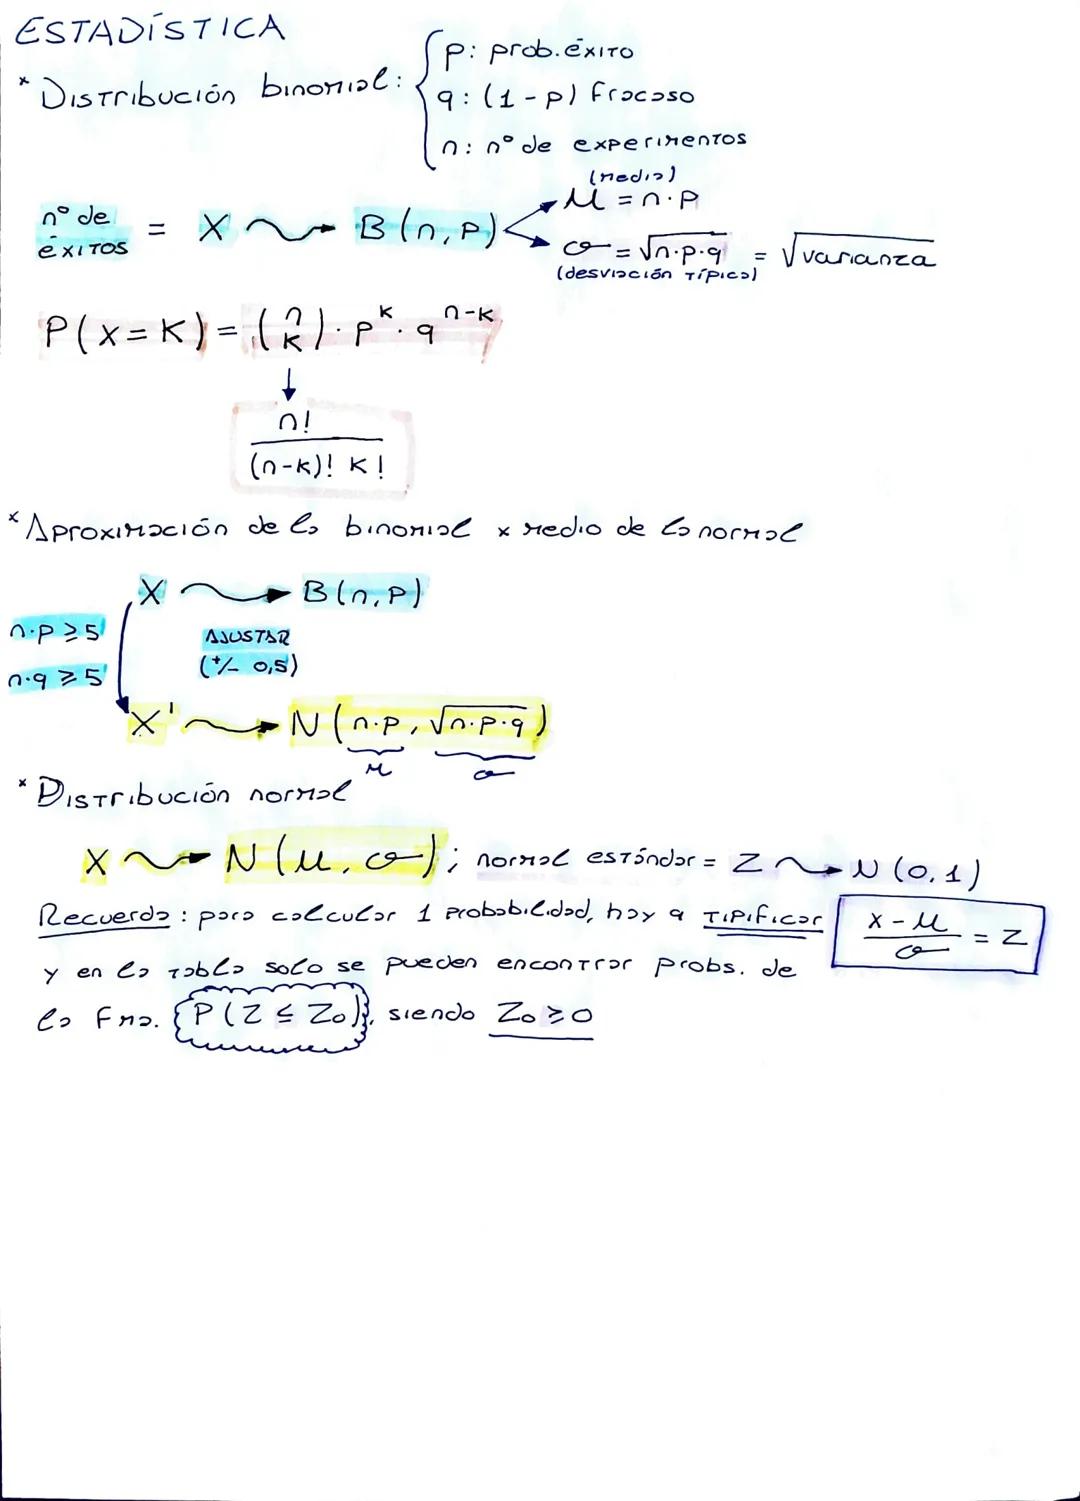 ESTADÍSTICA
* Distribución binomial: { p: prob. éxito
q: (1-p) fracaso
n: nº de experimentos
nº de éxitos = X ⟿ B(n,p)
(media)
μ = n·p
σ = √n·p·q = √varianza
(desviación típica)
P(x=K) = (n K) · p^K · q^n-K
↓
n!
(n-k)! k!
* Aproximación de la binomial x medio de la normal
X ⟿ B(n,p)
n·p ≥ 5
n·q ≥ 5
AJUSTAR
(+/- 0,5)
X' ⟿ N(n·p, √n·p·q)
μ σ
* Distribución normal
X ⟿ N(μ, σ); normal estándar = Z ⟿ N(0,1)
Recuerda: para calcular 1 probabilidad, hay q TIPIFICAR
x-μ
σ
= Z
y en la tabla solo se pueden encontrar probs. de
la fma. {P(Z ≤ Z₀)}, siendo Z₀ ≥ 0